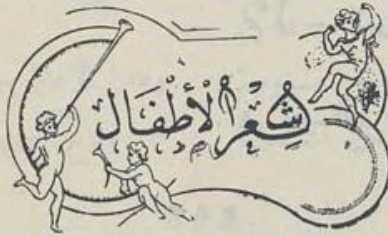 شِعْرُ الْأَطْفَال